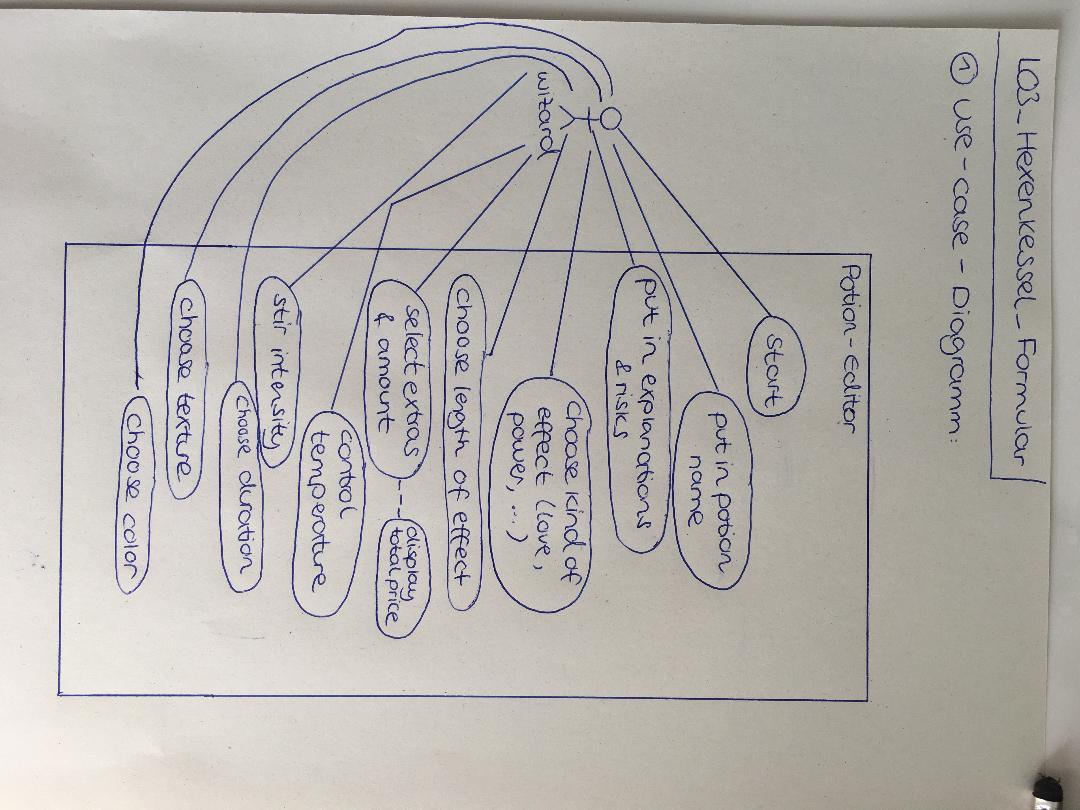 L03_Hexenkessel_Formular
① Use-case-Diagramm:
Potion-Editor
start
put in potion
name
put in explanations
& risks
choose kind of
effect (love,
power, ...)
wizard
choose length of effect
select extras
& amount
display
total price
control
temperature
stir intensity
choose duration
choose texture
choose color